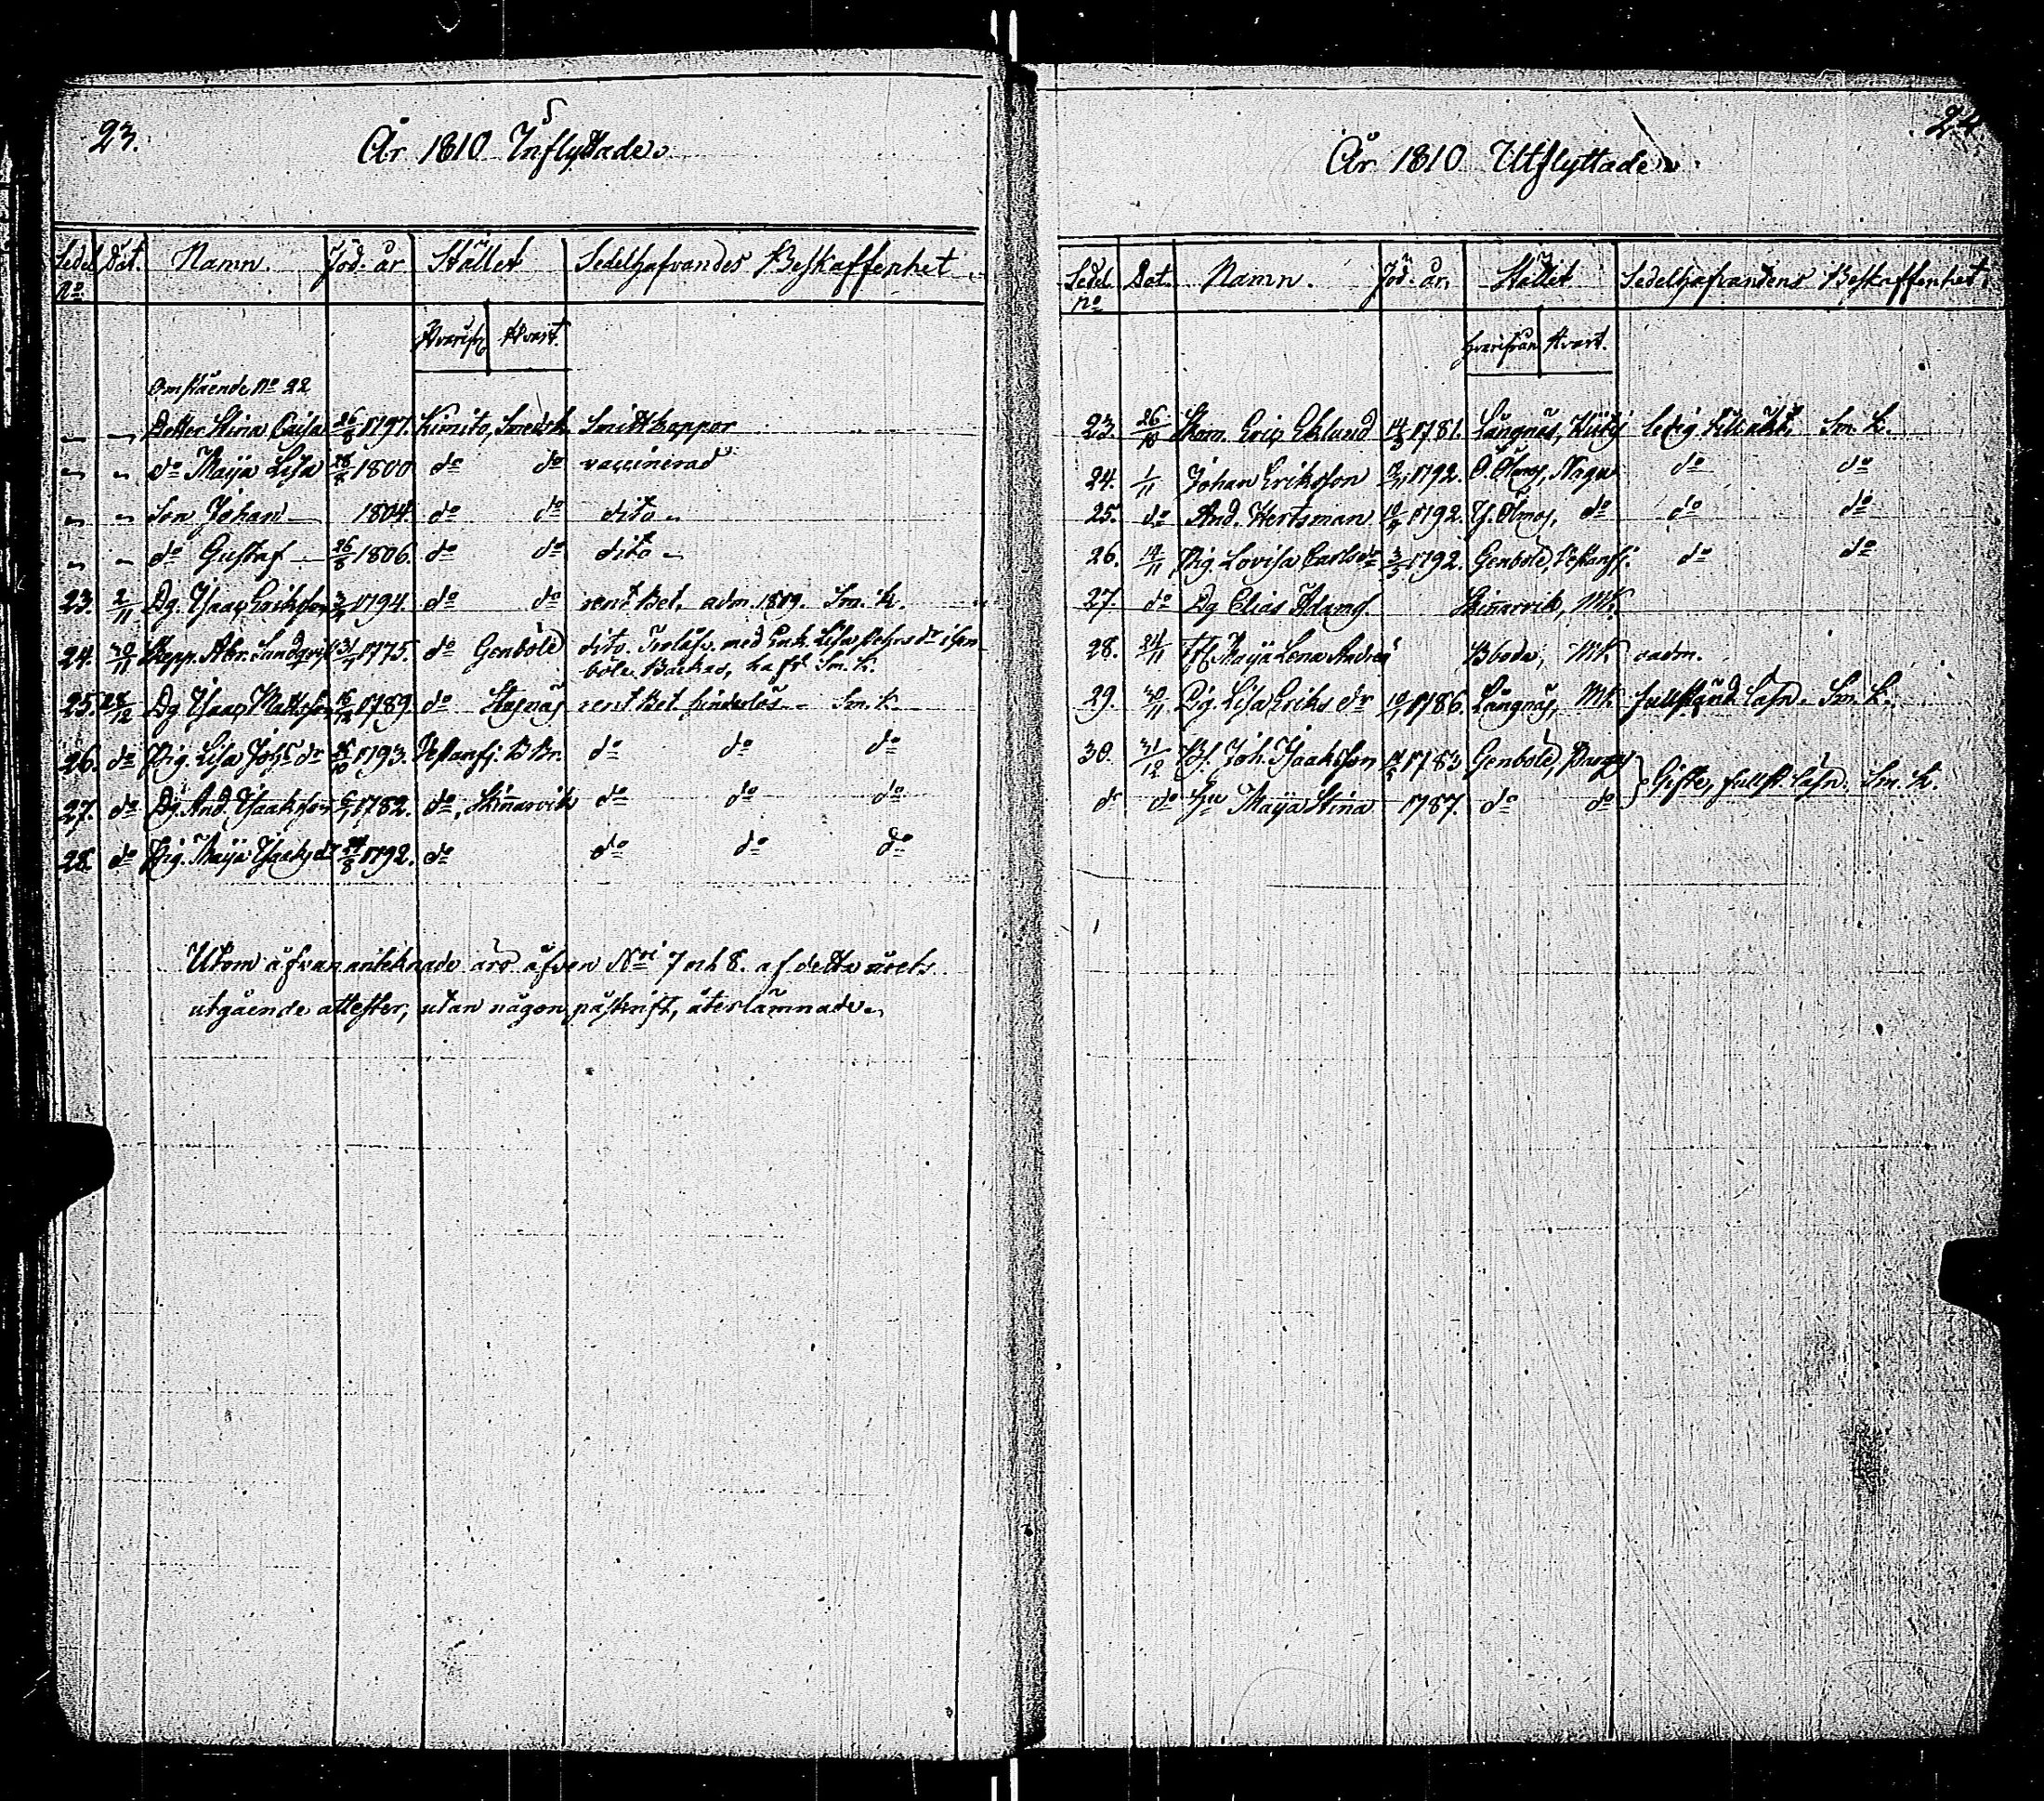 23.
År 1810 Inflyttade.
Sedel No Dat. Namn. Föd: år Stället Sedelhafvandes Beskaffenhet
Hvarifr. Hvart.
Omstående No 22
Dotter Stina Caisa 26/8 1797. Kimito, Smedsb. Smittkoppor
do Maija Lisa 28/8 1800 do do vaccinerad
Son Johan 1804 do do dito
do Gustaf 26/8 1806. do do dito
23. 2/11 Dg. Isaac Eriksson 1794. do do rent Bet. adm. 1809. Sm. K.
24. 30/11 Skepp. Abr. Sundqvist 1775. do Genböle dito. Trolofv. med Enk. Lisa do i Gen-
böle Backas, haft Sm. K.
25. 28/12 Dg Isaac Mattsson 1789 do Stagnäs rent Bet hinderlös Sm. K.
26. do Pig. Lisa Johs dr 1793. Vestanfj. B Br. do do do
27. do Dg. And. Isaaksson 1782. do, Skinarvik do do do
28. do Pig. Maija Isaks dr 24/8 1792. do do do do
Utom åfvan anteknade äro äfven Nri 7 och 8. af detta årets
utgående attester, utan någon påskrift, återlämnade.
24
År 1810 Utflyttade.
Sedel no Dat. Namn. Föd: år. Stället Sedelhafvandens Beskaffenhet.
hvarifrån Hvart.
23. 26/10 Skom. Eric Eklund 1781. Långnäs, ledig till äkt. Sm. K.
24. 1/11 Johan Eriksson 1792. Ö. Ölmos, Nagu do do
25. do And. Hertsman 1792. Y. Ölmos, do do do
26. 14/11 Pig. Lovisa Carls dr 3/3 1792. Genböle, Vestanfj. do do
27. do Dg Elias Adams. Skinarvik, Mk.
28. 24/11 Maija Lena Andrs Bboda, Mk oadm.
29. 30/11 Pig. Lisa Eriks dr 1786. Långnäs, Mk. fullständ. läsn. Sm. K.
30. 31/12 Bf. Joh. Isaaksson 1783 Genböle, Pargas } Gifte, fullst. läsn. Sm. K.
do do Hu Maija Stina 1787. do do